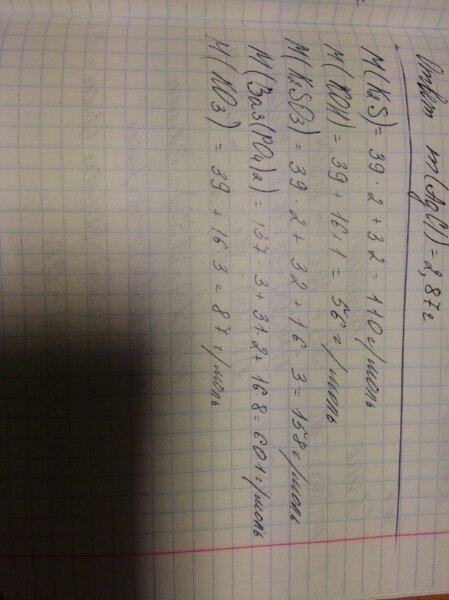 Ответ: m(AgCl) = 2,87г
M(K₂S) = 39 · 2 + 32 = 110 г/моль
M(KOH) = 39 + 16 + 1 = 56 г/моль
M(K₂SO₃) = 39 · 2 + 32 + 16 · 3 = 158 г/моль
M(Ba₃(PO₄)₂) = 137 · 3 + 31 · 2 + 16 · 8 = 601 г/моль
M(KO₃) = 39 + 16 · 3 = 87 г/моль